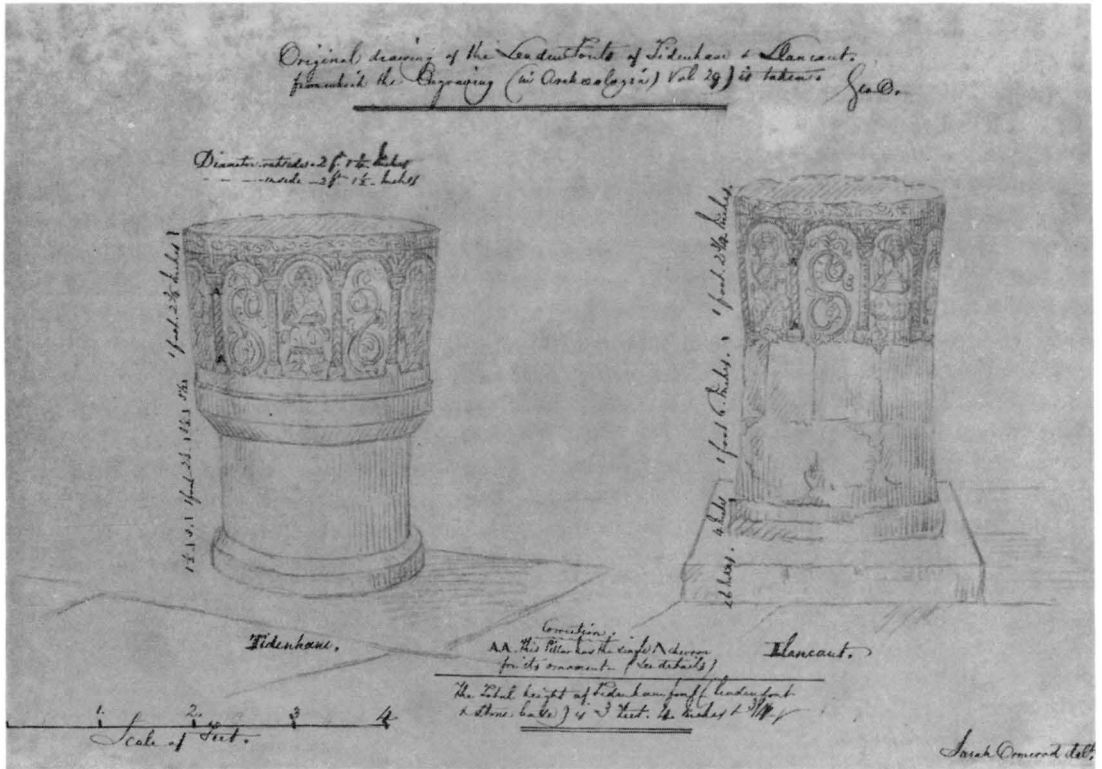 Original drawing of the Leaden Fonts of Tidenham & Llancaut.
from which the Engraving (in Archæologia) Vol 29) is taken.
Geo O.
Diameter outside - 2 f. 1 Inches
inside - 2 f. 1½ Inches
1 foot. 2½ Inches
1 foot. 2½ Inches.
1 foot 6 Inches.
4 Inches
Tidenham.
Llancaut.
Correction.
AA. This Pillar has the single Λ chevron
for its ornament - (See details)
The Total height of Tidenham font (leaden font
& stone base) is 3 Feet. Inches &
1. 2. 3 4
Scale of Feet.
Sarah Ormerod delt.